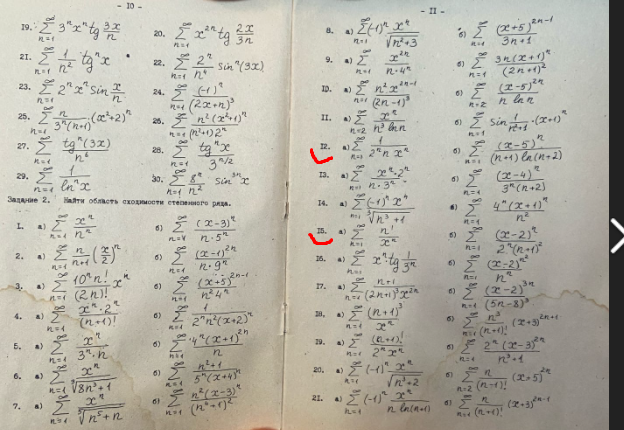 - 10 -
19. ∑_{n=1}^∞ 3ⁿ xⁿ tg 3x/n
20. ∑_{n=1}^∞ x²ⁿ tg 2x/3n
21. ∑_{n=1}^∞ 1/n² tgⁿ x
22. ∑_{n=1}^∞ 2ⁿ/n⁴ sinⁿ(3x)
23. ∑_{n=1}^∞ 2ⁿ xⁿ sin x/n
24. ∑_{n=1}^∞ (-1)ⁿ/(2x+n)³
25. ∑_{n=1}^∞ n/(3ⁿ(n+1)) (x²+2)ⁿ
26. ∑_{n=1}^∞ n²(x²+1)ⁿ/((n²+1)2ⁿ)
27. ∑_{n=1}^∞ tgⁿ(3x)/n⁶
28. ∑_{n=1}^∞ tgⁿx/n^{3/2}
29. ∑_{n=1}^∞ 1/lnⁿ x
30. ∑_{n=1}^∞ 8ⁿ/n² sin³ⁿ x
Задание 2. Найти области сходимости степенного ряда.
1. а) ∑_{n=1}^∞ xⁿ/nⁿ б) ∑_{n=4}^∞ (x-3)ⁿ/(n·5ⁿ)
2. а) ∑_{n=1}^∞ n/(n+1) (x/2)ⁿ б) ∑_{n=1}^∞ (x-1)²ⁿ/(n·9ⁿ)
3. а) ∑_{n=1}^∞ 10ⁿ n!/(2n)! xⁿ б) ∑_{n=1}^∞ (x+5)²ⁿ⁻¹/(n²4ⁿ)
4. а) ∑_{n=1}^∞ xⁿ·2ⁿ/(n+1)! б) ∑_{n=1}^∞ 1/(2ⁿn²(x+2)ⁿ)
5. а) ∑_{n=1}^∞ xⁿ/(3ⁿ·n) б) ∑_{n=1}^∞ 4ⁿ(x+1)²ⁿ/n
6. а) ∑_{n=1}^∞ xⁿ/√(8n³+1) б) ∑_{n=1}^∞ (n²+1)/(5ⁿ(x+4)ⁿ)
7. а) ∑_{n=1}^∞ xⁿ/√(n⁵+n) б) ∑_{n=1}^∞ n²(x-3)ⁿ/(n⁴+1)²
- 11 -
8. а) ∑_{n=1}^∞ (-1)ⁿ xⁿ/√(n²+3) б) ∑_{n=1}^∞ (x+5)²ⁿ⁻¹/(3n+1)
9. а) ∑_{n=1}^∞ x²ⁿ/(n·4ⁿ) б) ∑_{n=1}^∞ 3n(x+1)ⁿ/(2n+1)²
10. а) ∑_{n=1}^∞ n²x²ⁿ⁻¹/(2n-1)³ б) ∑_{n=2}^∞ (x-5)²ⁿ/(n ln n)
11. а) ∑_{n=2}^∞ xⁿ/(n³ ln n) б) ∑_{n=1}^∞ sin 1/(n²+1) ·(x+1)ⁿ
12. а) ∑_{n=1}^∞ 1/(2ⁿ n xⁿ) б) ∑_{n=1}^∞ (x-5)ⁿ/((n+1) ln(n+2))
13. а) ∑_{n=1}^∞ xⁿ·2ⁿ/(n·3ⁿ) б) ∑_{n=1}^∞ (x-4)ⁿ/(3ⁿ(n+2))
14. а) ∑_{n=1}^∞ (-1)ⁿ xⁿ/∛(n³+1) б) ∑_{n=1}^∞ 4ⁿ(x+1)ⁿ/n²
15. а) ∑_{n=1}^∞ n!/xⁿ б) ∑_{n=1}^∞ (x-2)ⁿ/(2ⁿ(n+1)²)
16. а) ∑_{n=1}^∞ xⁿ tg 1/3ⁿ б) ∑_{n=1}^∞ (x-2)^{n²}/nⁿ
17. а) ∑_{n=1}^∞ (n+1)/((2n+1)³x²ⁿ) б) ∑_{n=1}^∞ (x-2)³ⁿ/(5n-8)³
18. а) ∑_{n=1}^∞ (n+1)³/xⁿ б) ∑_{n=1}^∞ n³/(n+1)! (x+3)²ⁿ⁺¹
19. а) ∑_{n=1}^∞ (n+1)!/(2ⁿxⁿ) б) ∑_{n=1}^∞ 2ⁿ(x-3)²ⁿ/(n³+1)
20. а) ∑_{n=1}^∞ (-1)ⁿ xⁿ/√(n³+2) б) ∑_{n=2}^∞ n/(n+1)! (x+5)²ⁿ
21. а) ∑_{n=1}^∞ (-1)ⁿ xⁿ/(n ln(n+1)) б) ∑_{n=1}^∞ n/(n+1)! (x+3)²ⁿ⁻¹